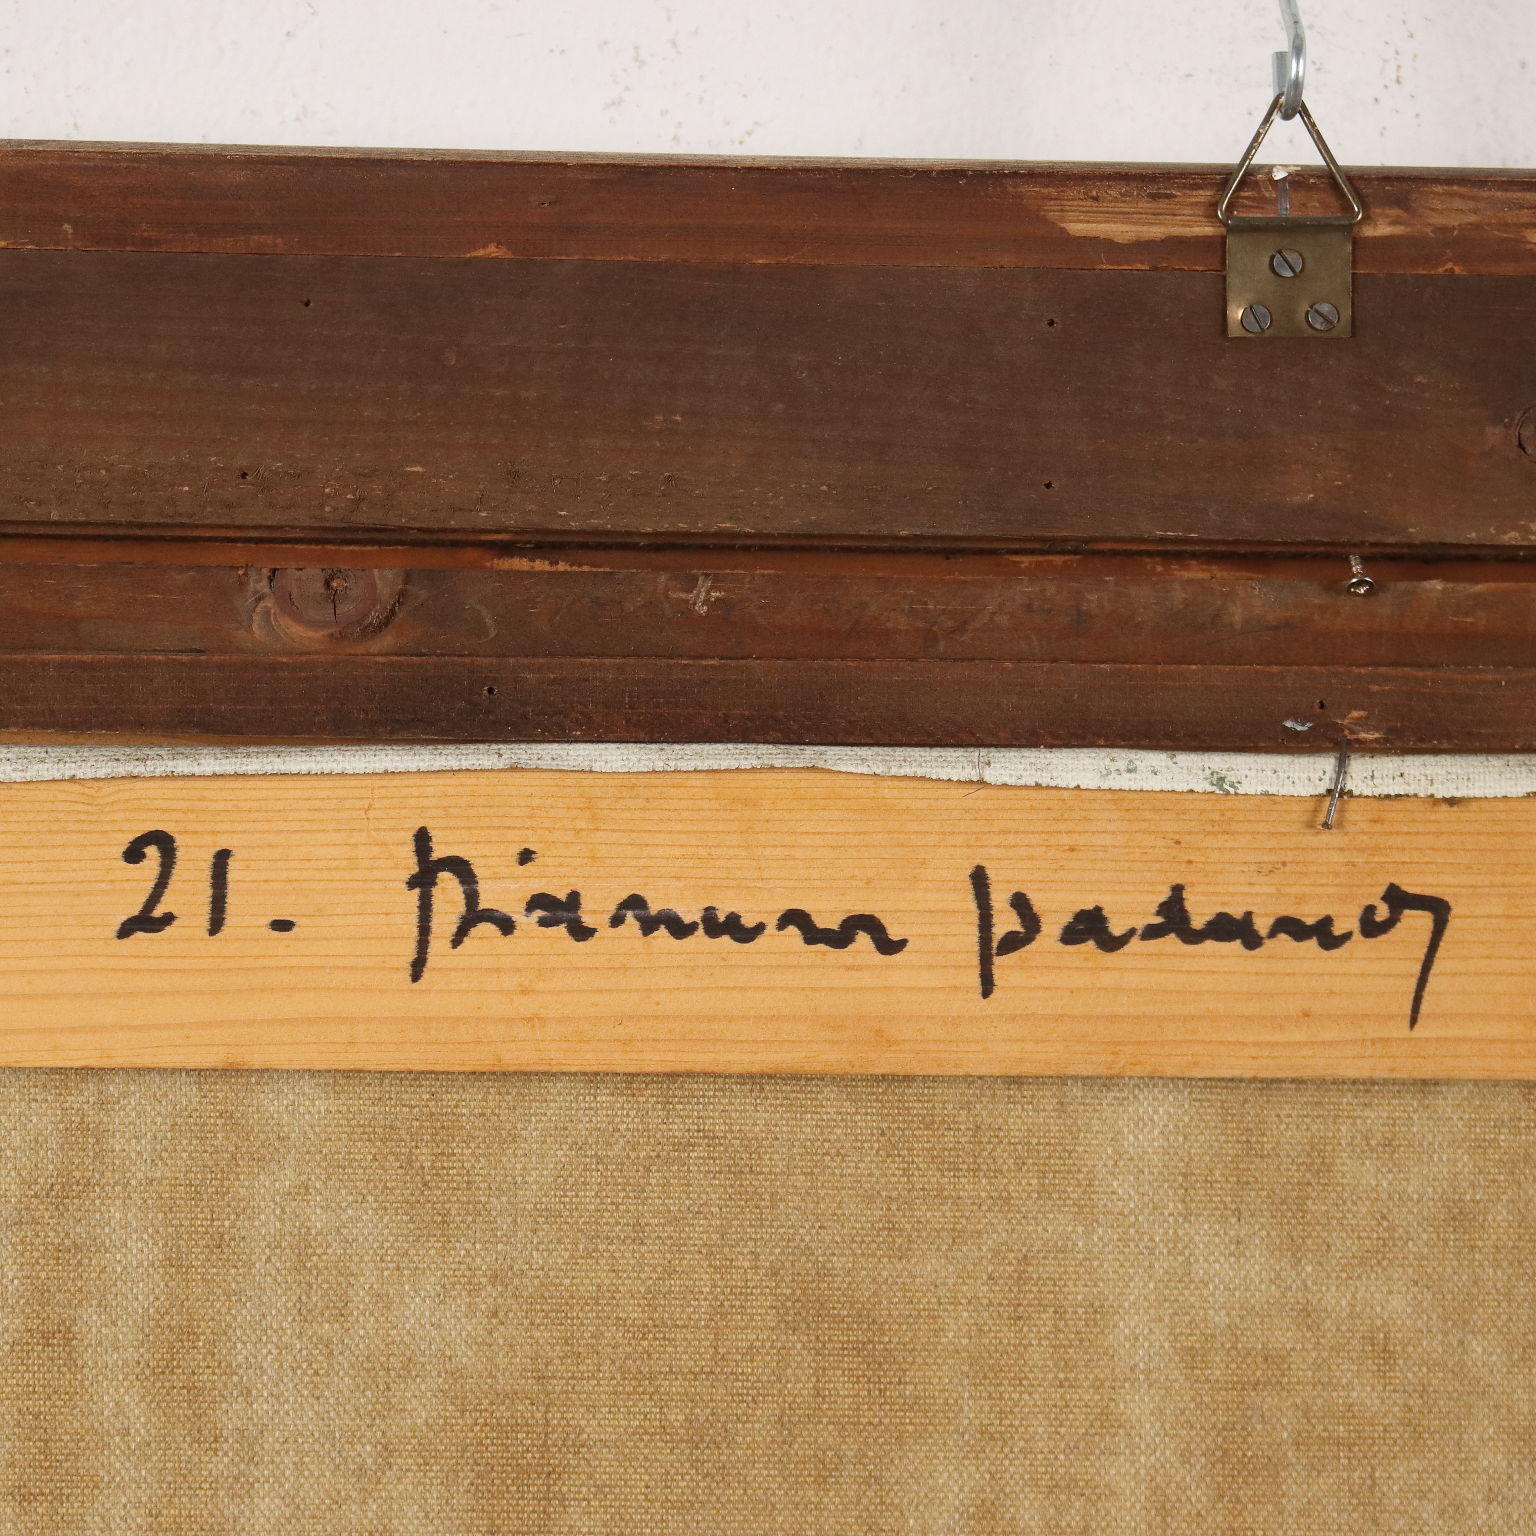 21. pianura padana